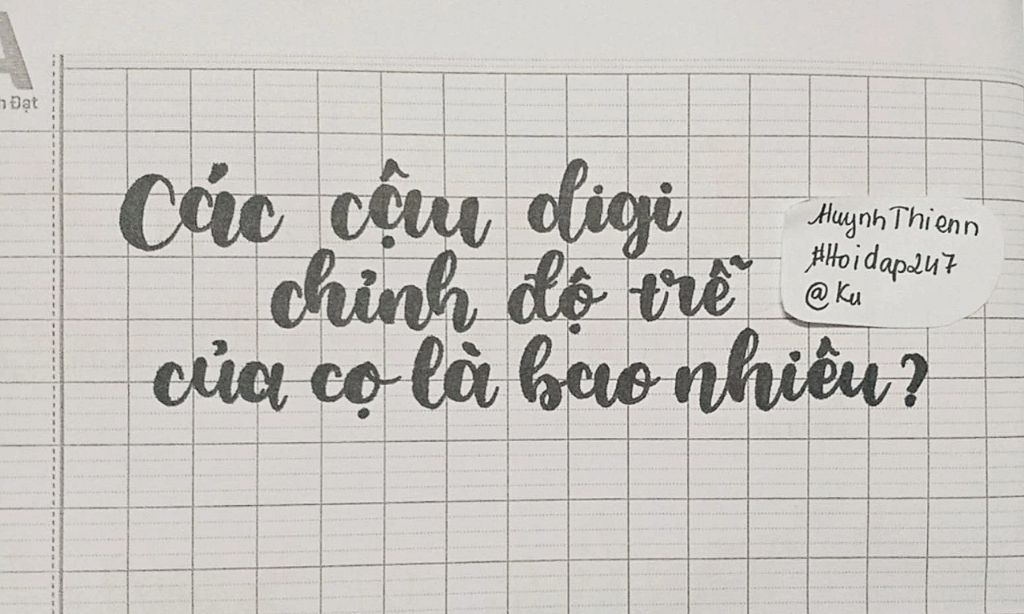 A
h Đạt
Các cậu digi
chỉnh độ trễ
của cọ là bao nhiêu?
HuynhThienn
#Hoidap247
@Ku